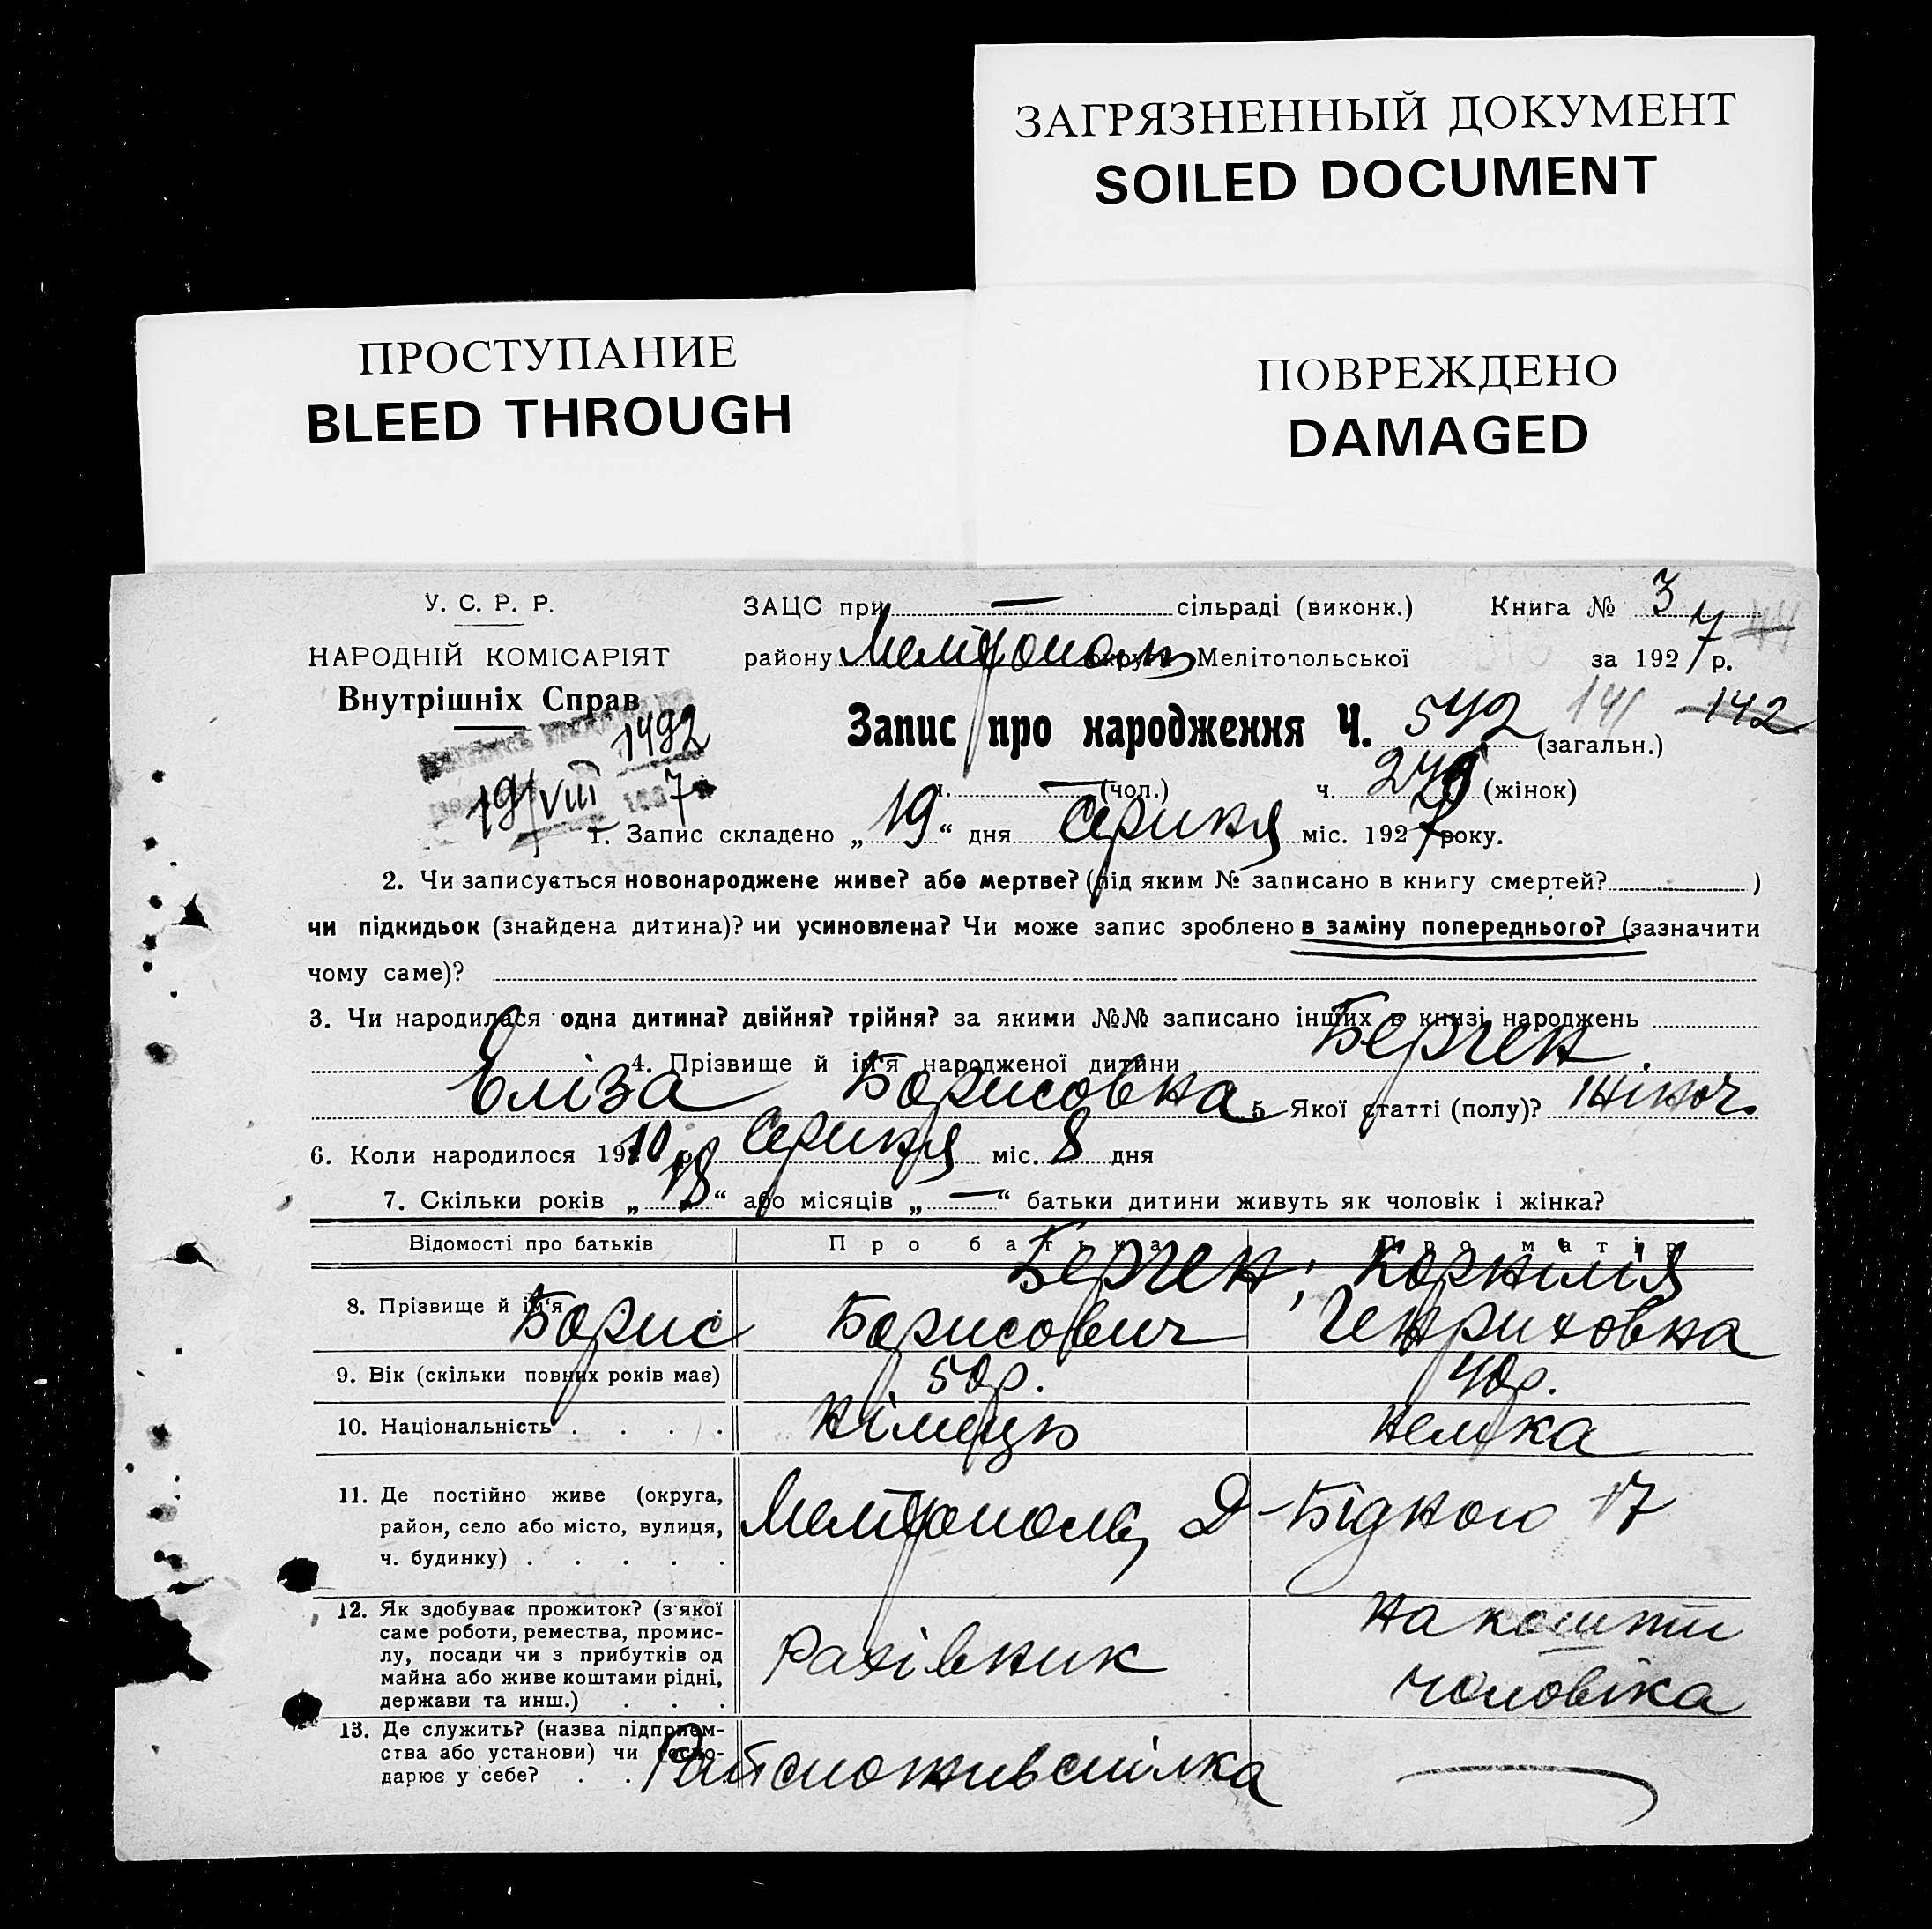 ЗАГРЯЗНЕННЫЙ ДОКУМЕНТ
SOILED DOCUMENT
ПРОСТУПАНИЕ
BLEED THROUGH
ПОВРЕЖДЕНО
DAMAGED
У. С. Р. Р.
НАРОДНІЙ КОМІСАРІЯТ
Внутрішніх Справ
1492
19/VIII 7
ЗАЦС при — сільраді (виконк.) Книга № 3
району Мелітополь округи Мелітопольської за 1927 р. 44
Запис про народження Ч. 542 (загальн.) 141 142
ч. — (чол.) ч. (жінок)
1. Запис складено „19“ дня Серпня міс. 1927 року.
2. Чи записується новонароджене живе? або мертве? (під яким № записано в книгу смертей? )
чи підкидьок (знайдена дитина)? чи усиновлена? Чи може запис зроблено в заміну попереднього? (зазначити
чому саме)?
3. Чи народилася одна дитина? двійня? трійня? за якими №№ записано інших в книзі народжень
4. Прізвище й ім'я народженої дитини Берген
Еліза Борисовна 5. Якої статті (полу)? жіноч.
6. Коли народилося 1910 р. Серпня міс. 8 дня
7. Скільки років „18“ або місяців „—“ батьки дитини живуть як чоловік і жінка?
Відомості про батьків Про батька Про матір
8. Прізвище й ім'я Берген; Корнілія
Борис Борисович Генриховна
9. Вік (скільки повних років має) 50р. 40р.
10. Національність . . . . Німець Немка
11. Де постійно живе (округа,
район, село або місто, вулиця,
ч. будинку) . . . . . Мелітополь, Д-Бідного 17
12. Як здобуває прожиток? (з якої
саме роботи, ремества, промис-
лу, посади чи з прибутків од
майна або живе коштами рідні,
держави та инш.) . . . Рахівник на кошти
чоловіка
13. Де служить? (назва підприєм-
ства або установи) чи госпо-
дарює у себе? . . Райспоживспілка —